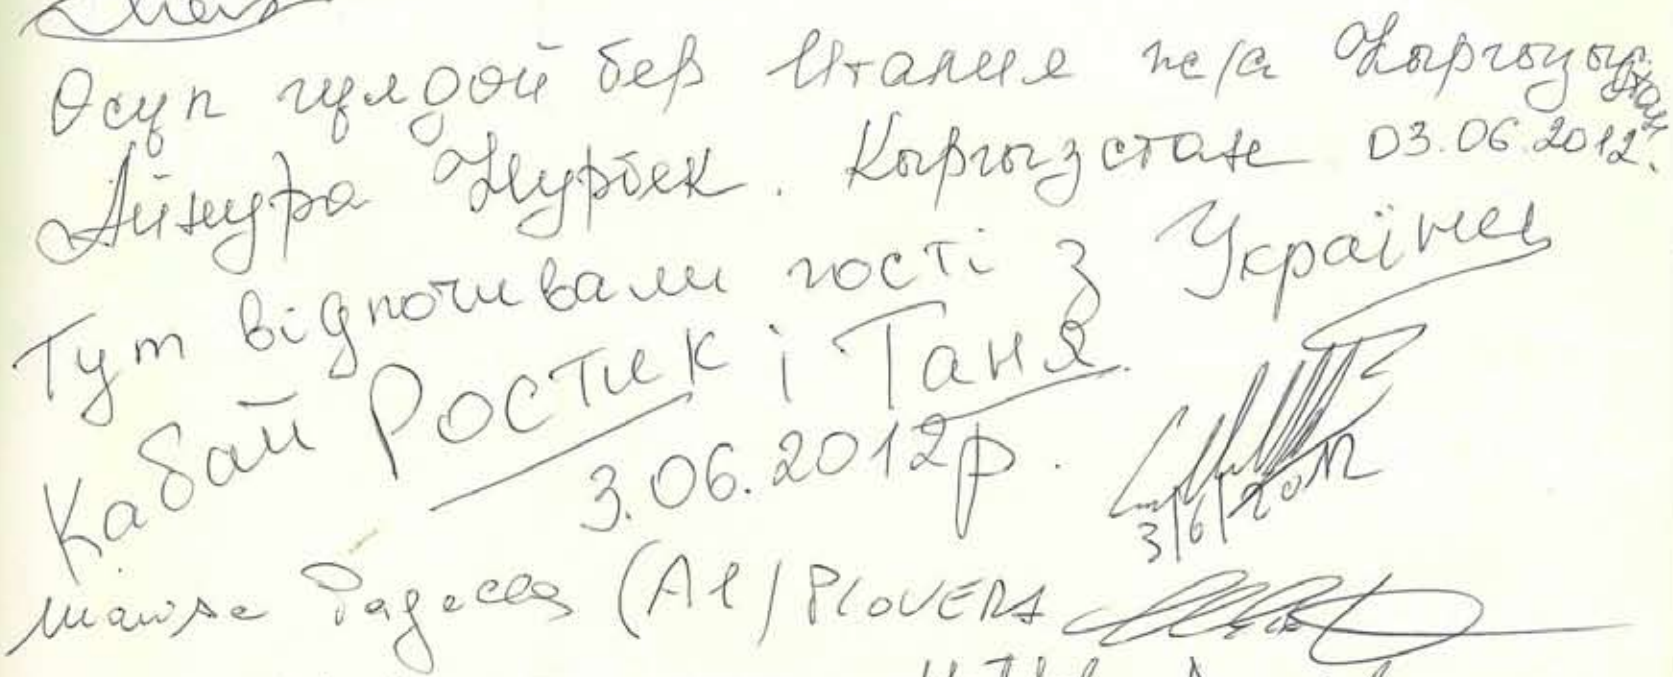 Осуп гүлдой бер Италия ж/а Кыргызыстан
Айнура Нурбек. Кыргызстан 03.06.2012.
Тут відпочивали гості з України
Кабай Ростик і Таня
3.06.2012р.
3/6/2012
(Al) PIOVERA